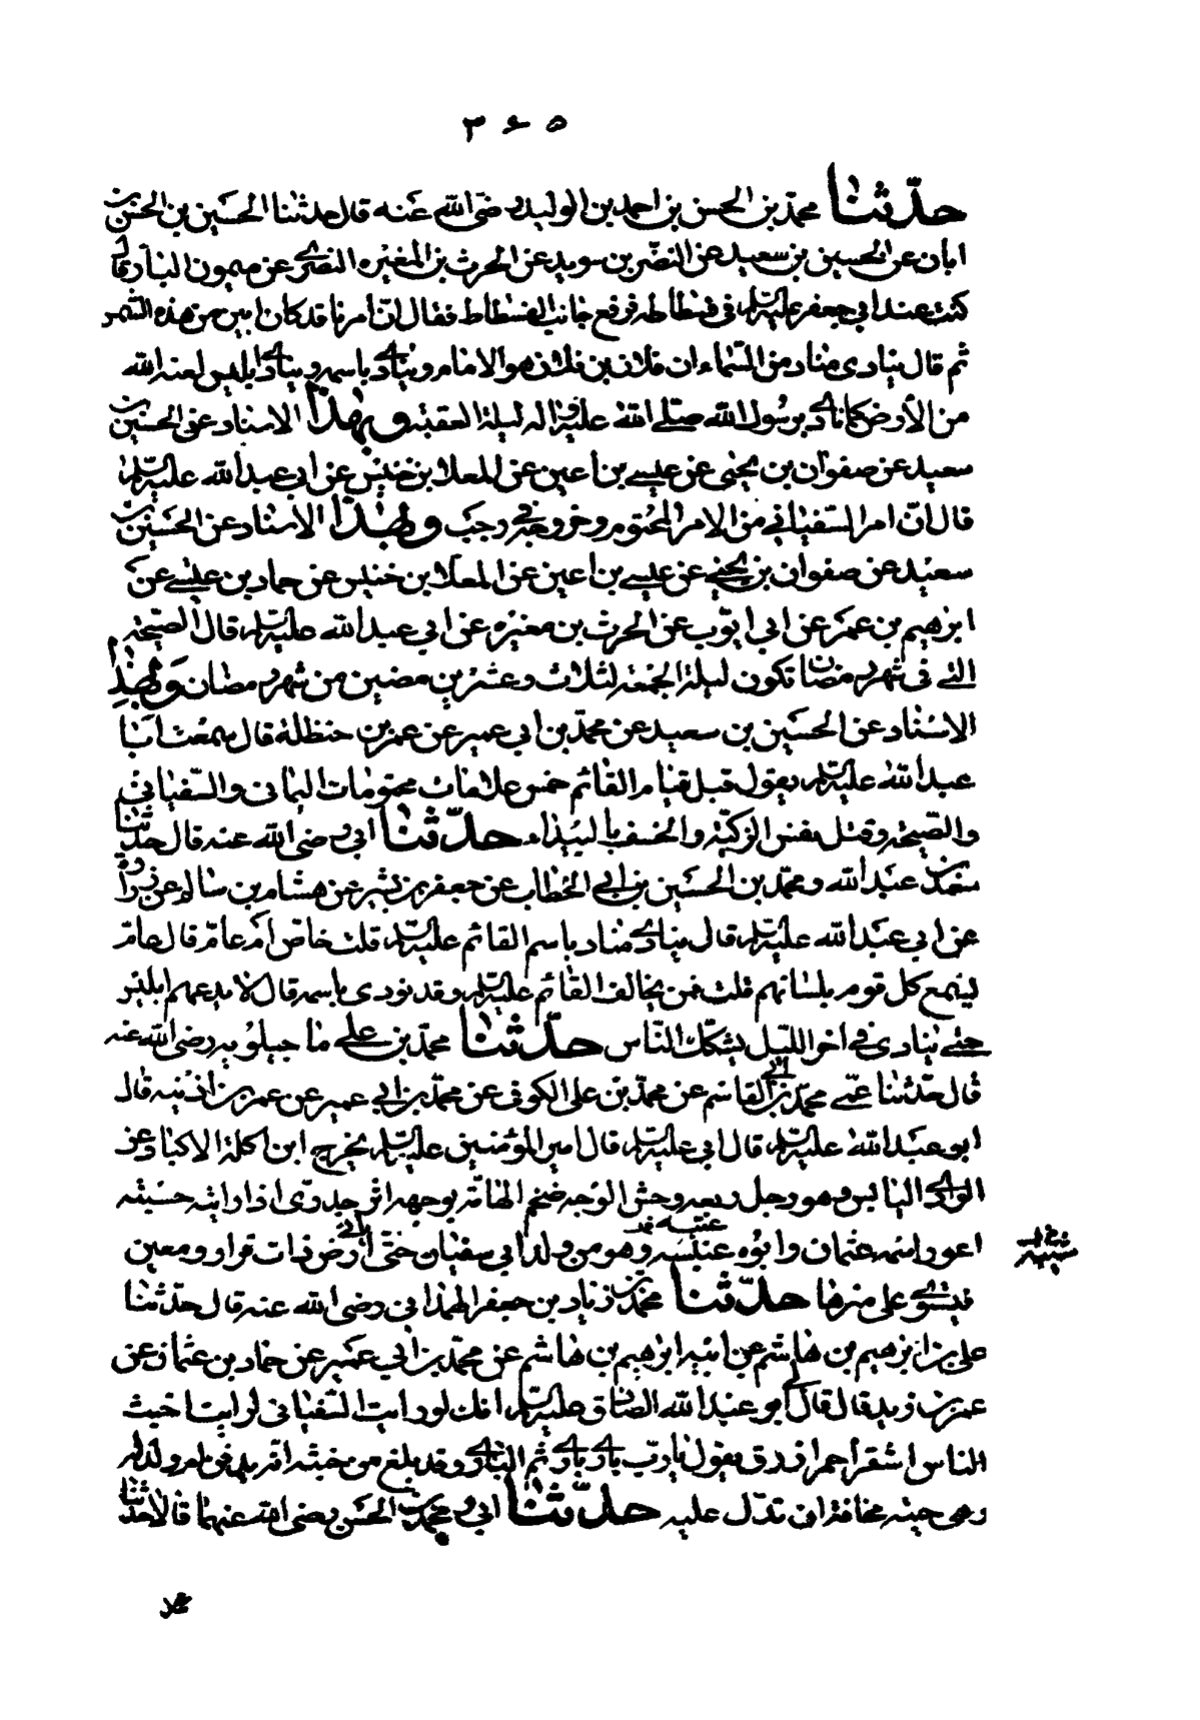 ۳۶۵
حدّثنا محمّد بن الحسن بن احمد بن الوليد رضى الله عنه قال حدثنا الحسين بن الحسن بن
ابان عن الحسين بن سعيد عن النضر بن سويد عن الحرث بن المغيره النصرى عن ميمون البان قال
كنت عند ابى جعفر عليه السلم فى فسطاطه فرفع جانب الفسطاط فقال انّ امرنا قد كان ابين من هذه الشمس
ثم قال ينادى مناد من السّماء ان فلان بن فلان هو الامام وينادى باسمه وينادى ابليس لعنه الله
من الأرض كما نادى برسول الله صلّى الله عليه واله ليلة العقبه وبهذا الاسناد عن الحسين بن
سعيد عن صفوان بن يحيى عن عيسى بن اعين عن المعلا بن خنيس عن ابى عبد الله عليه السلم
قال انّ امر السّفيانى من الامر المحتوم وخروجه فى رجب وبهذا الاسناد عن الحسين بن
سعيد عن صفوان بن يحيى عن عيسى بن اعين عن المعلا بن خنيس عن حماد بن عيسى عن
ابرهيم بن عمر عن ابى ايّوب عن الحرث بن مغيره عن ابى عبد الله عليه السلم قال الصّيحة
الّتى فى شهر رمضان تكون ليلة الجمعة لثلاث وعشرين مضين من شهر رمضان وبهذا
الاسناد عن الحسين بن سعيد عن محمّد بن ابى عمير عن عمر بن حنظلة قال سمعت ابا
عبد الله عليه السلم يقول قبل قيام القائم خمس علامات محتومات اليمانى والسّفيانى
والصّيحة وقتل نفس الزكيّة والخسف بالبيداء حدّثنا ابى رضى الله عنه قال حدّثنا
سعد بن عبد الله ومحمّد بن الحسين بن ابى الخطاب عن جعفر بن بشير عن هشام بن سالم عن زرارة
عن ابى عبد الله عليه السلم قال ينادى مناد باسم القائم عليه السلم قلت خاصّ ام عامّ قال عامّ
ليسمع كل قوم بلسانهم قلت فمن يخالف القائم عليه السلم وقد نودى باسمه قال لا يدعهم ابليس
حتّى ينادى فى اخر اللّيل يشكّك النّاس حدّثنا محمّد بن على ما جيلويه رضى الله عنه
قال حدّثنا عمّى محمّد بن ابى القاسم عن محمّد بن على الكوفى عن محمّد بن ابى عمير عن عمر بن اذينه قال
ابو عبد الله عليه السلم قال ابى عليه السلم قال امير المؤمنين عليه السلم يخرج ابن اكلة الاكباد عن
الوادى اليابس وهو رجل ربعه وحش الوجه ضخم الهامّة بوجهه اثر جدرىّ اذا رايته حسبته
اعور اسمه عثمان وابوه عنبسه وهو من ولد ابى سفيان حتّى يأتى ارض ذات قرار ومعين
عتبسه
فيستوى على منبرها حدّثنا محمّد بن زياد بن جعفر الهمدانى رضى الله عنه قال حدّثنا
على بن ابرهيم بن هاشم عن ابيه ابرهيم بن هاشم عن محمّد بن ابى عمير عن حماد بن عثمان عن
عمر بن زيد قال قال لى ابو عبد الله الصّادق عليه السلم انك لو رايت السّفيانى لرايت اخبث
الناس اشقر احمر ازرق يقول يا ربّ يا ربّ يا ربّ ثم النار وقد بلغ من خبثه انّه يدفن ام ولد له
وهى حيّة مخافة ان تدلّ عليه حدّثنا ابى ومحمّد بن الحسن رضى الله عنهما قالا حدّثنا
محمد